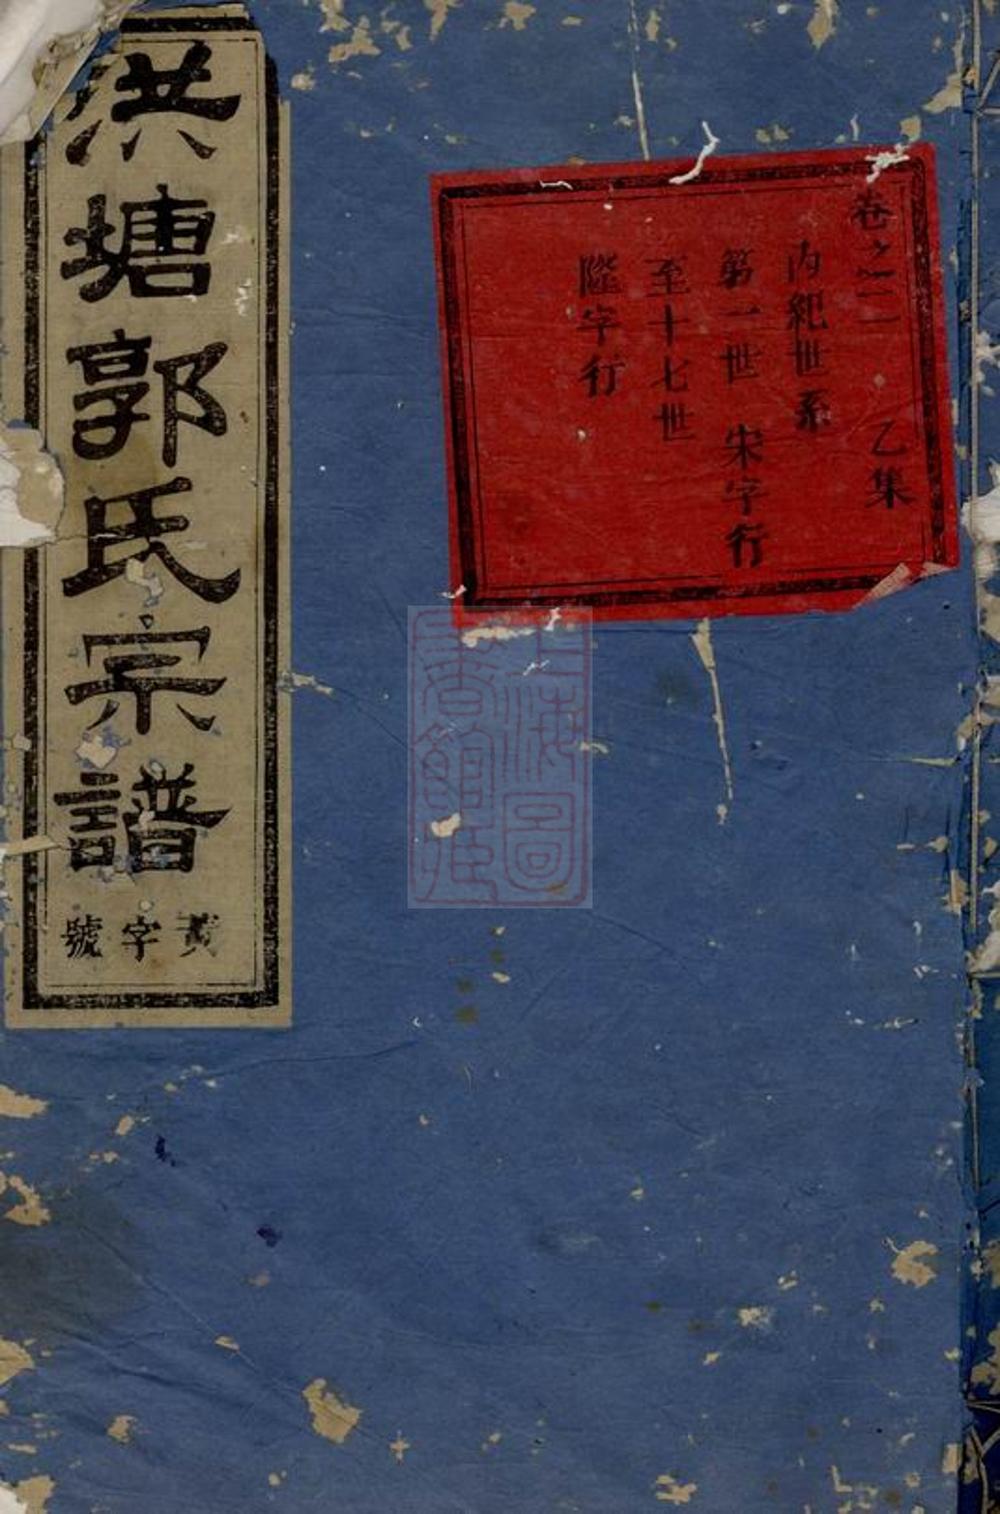 卷之二 乙集
內紀世系
第一世 宋字行
至十七世
陞字行
洪塘郭氏宗譜
黃字號
上海圖書館藏